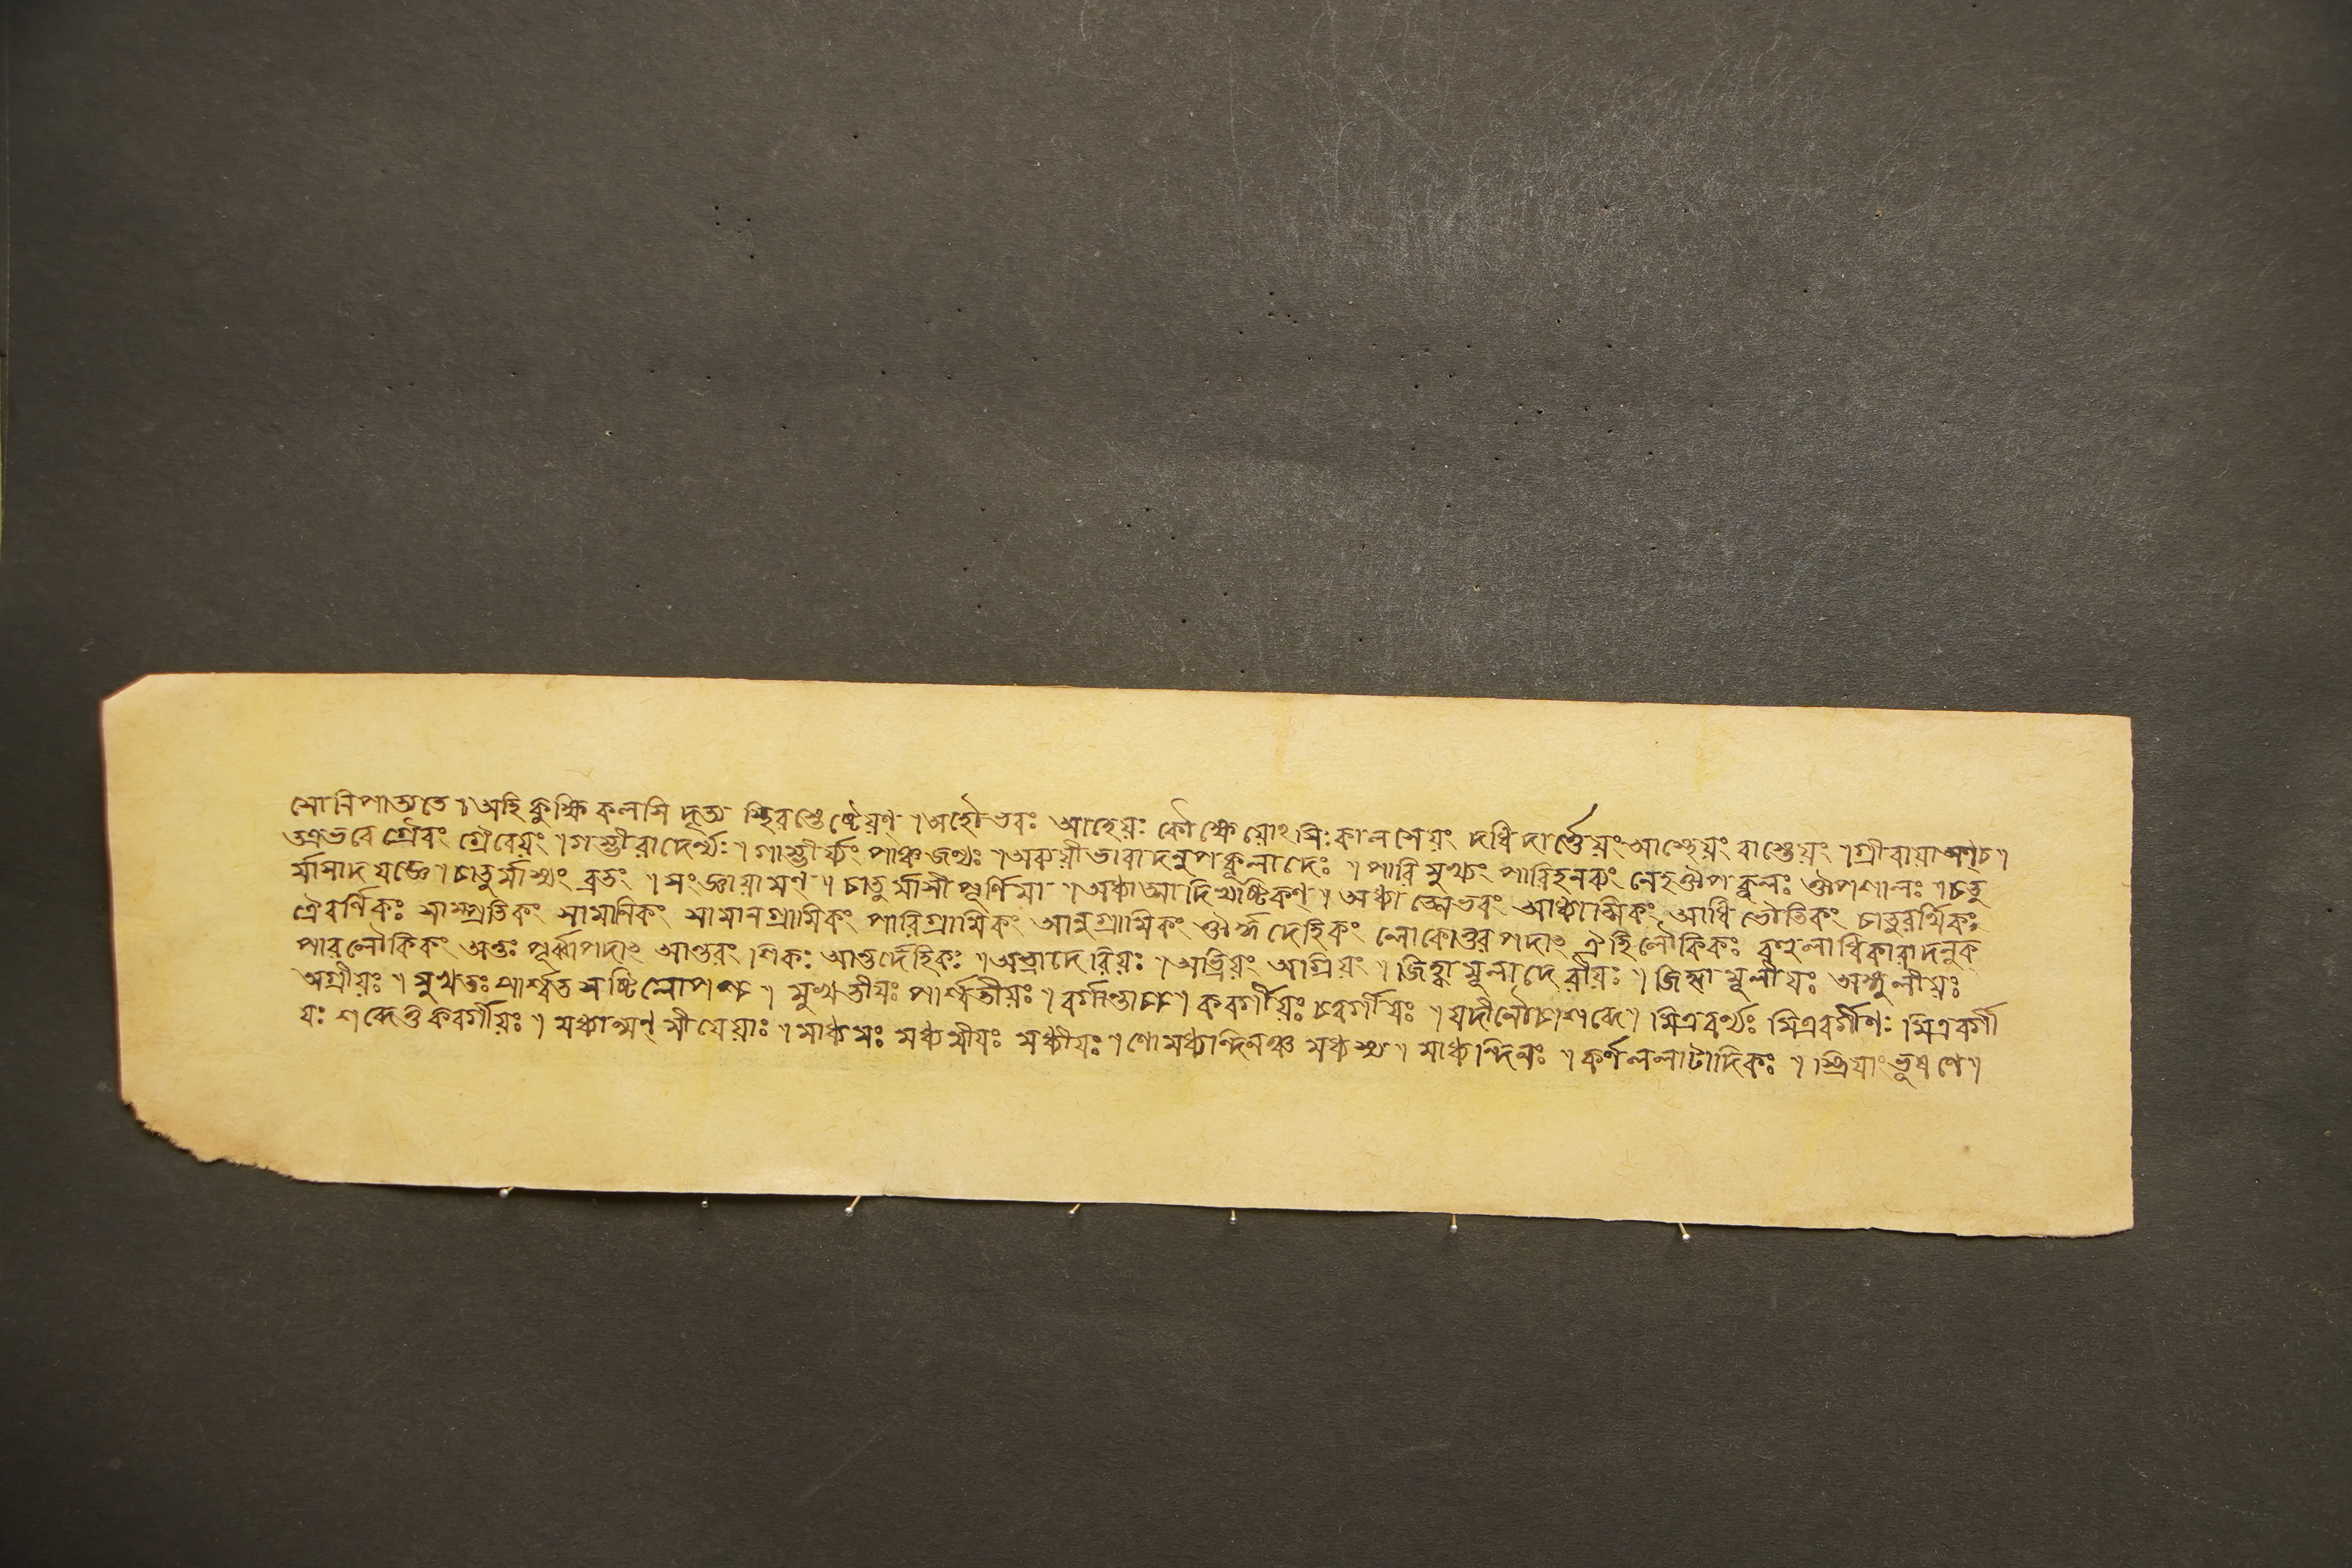 মো নিপাত্যতে ৷ অহি কুক্ষি কলসি দৃত্য স্থিবস্তেষ্টেয়ণ্ ৷ অহৌ ভবঃ আহেয়ঃ কৌক্ষেয়োঽসিঃ কালসেয়ং দধি দার্ত্তেয়ং আস্তেয়ং বাস্তেয়ং ৷ গ্রীবায়া অণ্চ ৷
তত্রভবে গ্রৈবং গ্রৈবেয়ং ৷ গম্ভীরাদের্ণ্যঃ ৷ গাম্ভীর্য্যং পাঞ্চজন্যঃ ৷ অব্যয়ীভাবাদনুপকূলাদেঃ ৷ পারিমুখ্যং পারিহনব্যং নেহ ঔপকূলঃ ঔপশালঃ ৷ চতু
র্মাসাদ যজ্ঞে ৷ চাতুর্মাস্যং ব্রতং ৷ সংজ্ঞায়ামণ্ ৷ চাতুর্মাসী পূর্ণিমা ৷ অধ্যাত্মাদি ষ্টিকণ্ ৷ অধ্যাত্মেভবং আধ্যাত্মিকং আধিভৌতিকং চাতুরর্থিকঃ
ত্রৈবর্ণিকঃ সাম্প্রতিকং সামানিকং সামানগ্রামিকং পারিগ্রামিকং আনুগ্রামিকং ঔর্দ্ধদেহিকং লোকোত্তরপদাৎ ঐহিলৌকিকঃ বহুলাধিকারাদনুক্
পারলৌকিকং অন্তঃ পূর্ব্বাপদাৎ আন্তরং শিকঃ আন্তর্দেহিকঃ ৷ অভ্রাদেরিয়ঃ ৷ অভ্রিয়ং অগ্রিয়ং ৷ জিহ্বামূলাদেরীয়ঃ ৷ জিহ্বামূলীয়ঃ অঙ্গুলীয়ঃ
অগ্রীয়ঃ ৷ মুখতঃ পার্শ্বত সষ্টিলোপশ্চ ৷ মুখতীয়ঃ পার্শ্বতীয়ঃ ৷ বর্গান্তাচ্চ ৷ কবর্গীয়ঃ চবর্গীয়ঃ ৷ যদীনৌচাশব্দে ৷ মিত্রবর্গ্যঃ মিত্রবর্গীণঃ মিত্রবর্গী
যঃ শব্দেতু কবর্গীয়ঃ ৷ মধ্যান্মণ্ মীয়েয়াঃ ৷ মাধ্যমঃ মধ্যমীয়ঃ মধ্যীয়ঃ ৷ ণোমধ্যন্দিনঞ্চ মধ্যস্য ৷ মাধ্যন্দিনঃ ৷ কর্ণললাটাদিকঃ ৷ স্ত্রিয়াং ভূষণে ৷